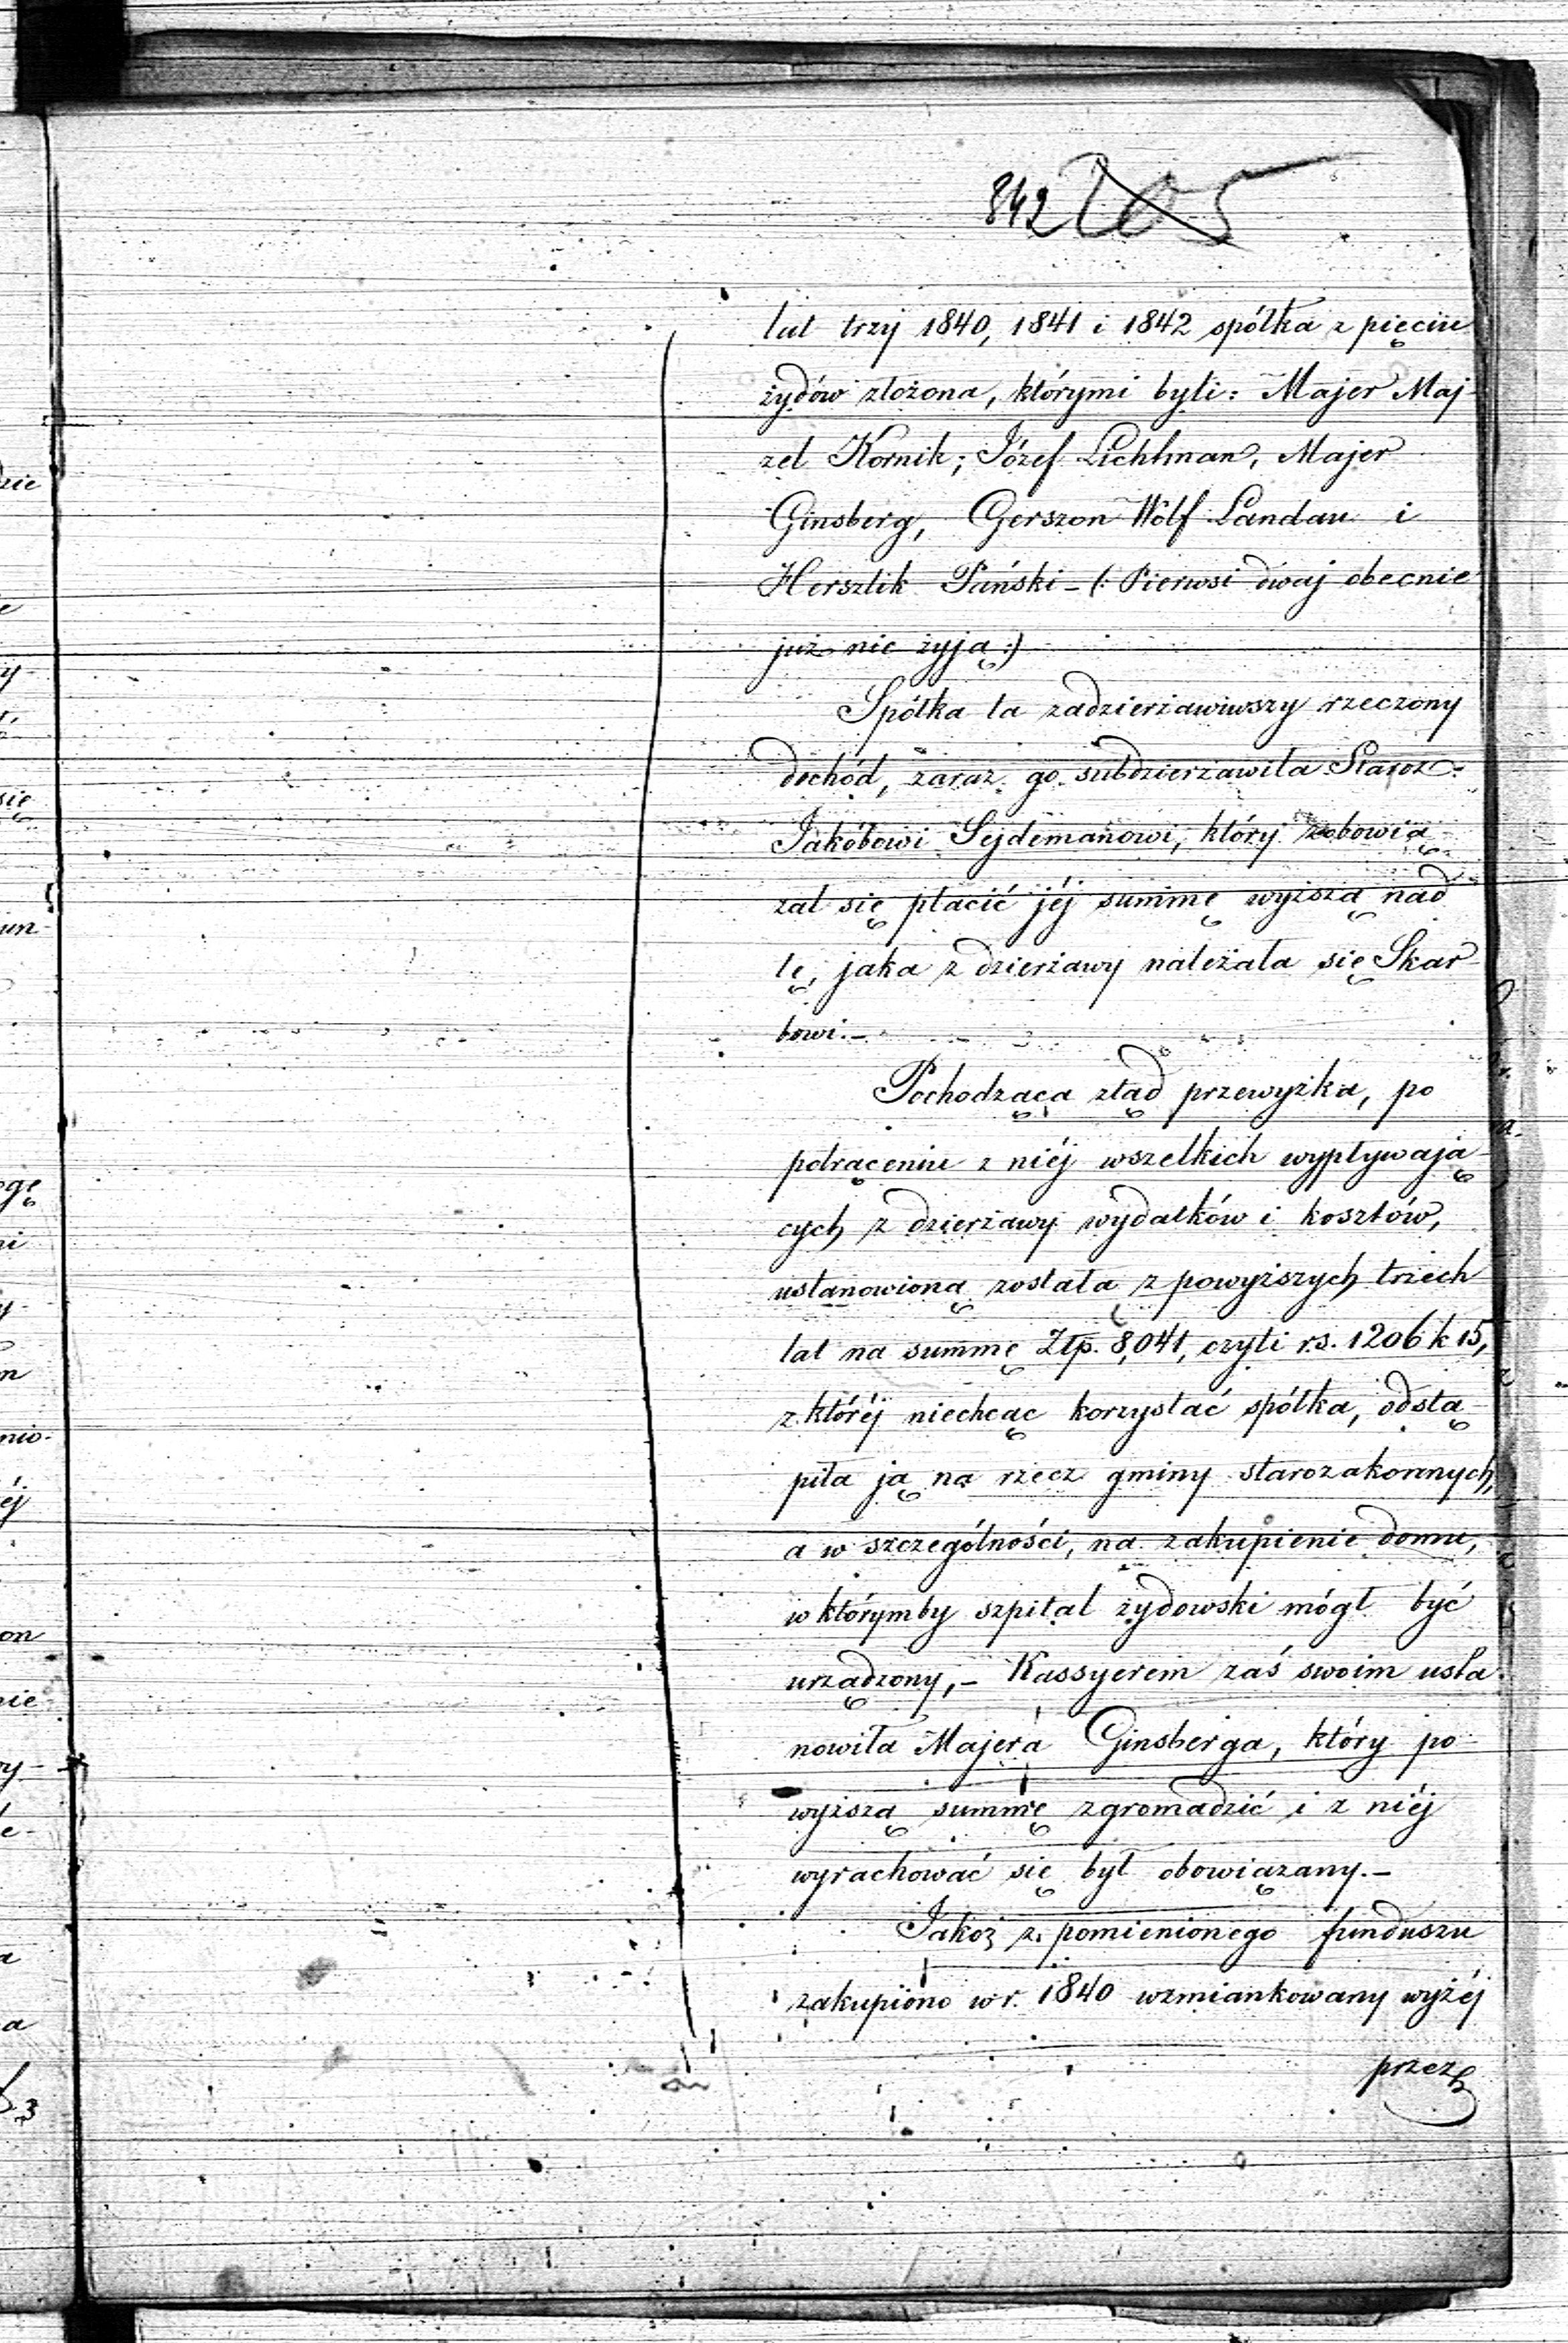 842 205
lat trzy 1840, 1841 i 1842 spółka z pięciu
żydów złożona, którymi byli: Majer Maj-
zel Kornik; Józef Lichtman, Majer
Ginsberg, Gerszon Wolf Landau i
Herszlik Pański – (: Pierwsi dwaj obecnie
już nie żyją :)
Spółka ta zadzierżawiwszy rzeczony
dochód, zaraz go subdzierżawiła Staroz:
Jakóbowi Sejdemanowi, który zobowią-
zał się płacić jéj summę wyższą nad
tę, jaka z dzierżawy należała się Skar-
bowi. –
Pochodząca ztąd przewyżka, po
potrąceniu z niéj wszelkich wypływają-
cych z dzierżawy wydatków i kosztów,
ustanowioną została z powyższych trzech
lat na summę Złp. 8,041, czyli r.s. 1206 k 15,
z któréj niechcąc korzystać spółka, odstą-
piła ją na rzecz gminy starozakonnych,
a w szczególności, na zakupienie domu,
w którymby szpital żydowski mógł być
urządzony, – Kassyerem zaś swoim usta-
nowiła Majera Ginsberga, który po-
wyższą summę zgromadzić i z niéj
wyrachować się był obowiązany. –
Jakoż z pomienionego funduszu
zakupiono w r. 1840 wzmiankowany wyżéj
przez